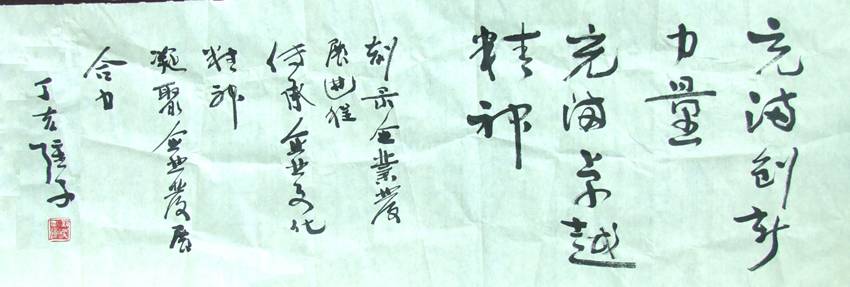 充满创新
力量
充满卓越
精神
刻录企业发
展进程
传承企业文化
精神
凝聚企业发展
合力
丁亥